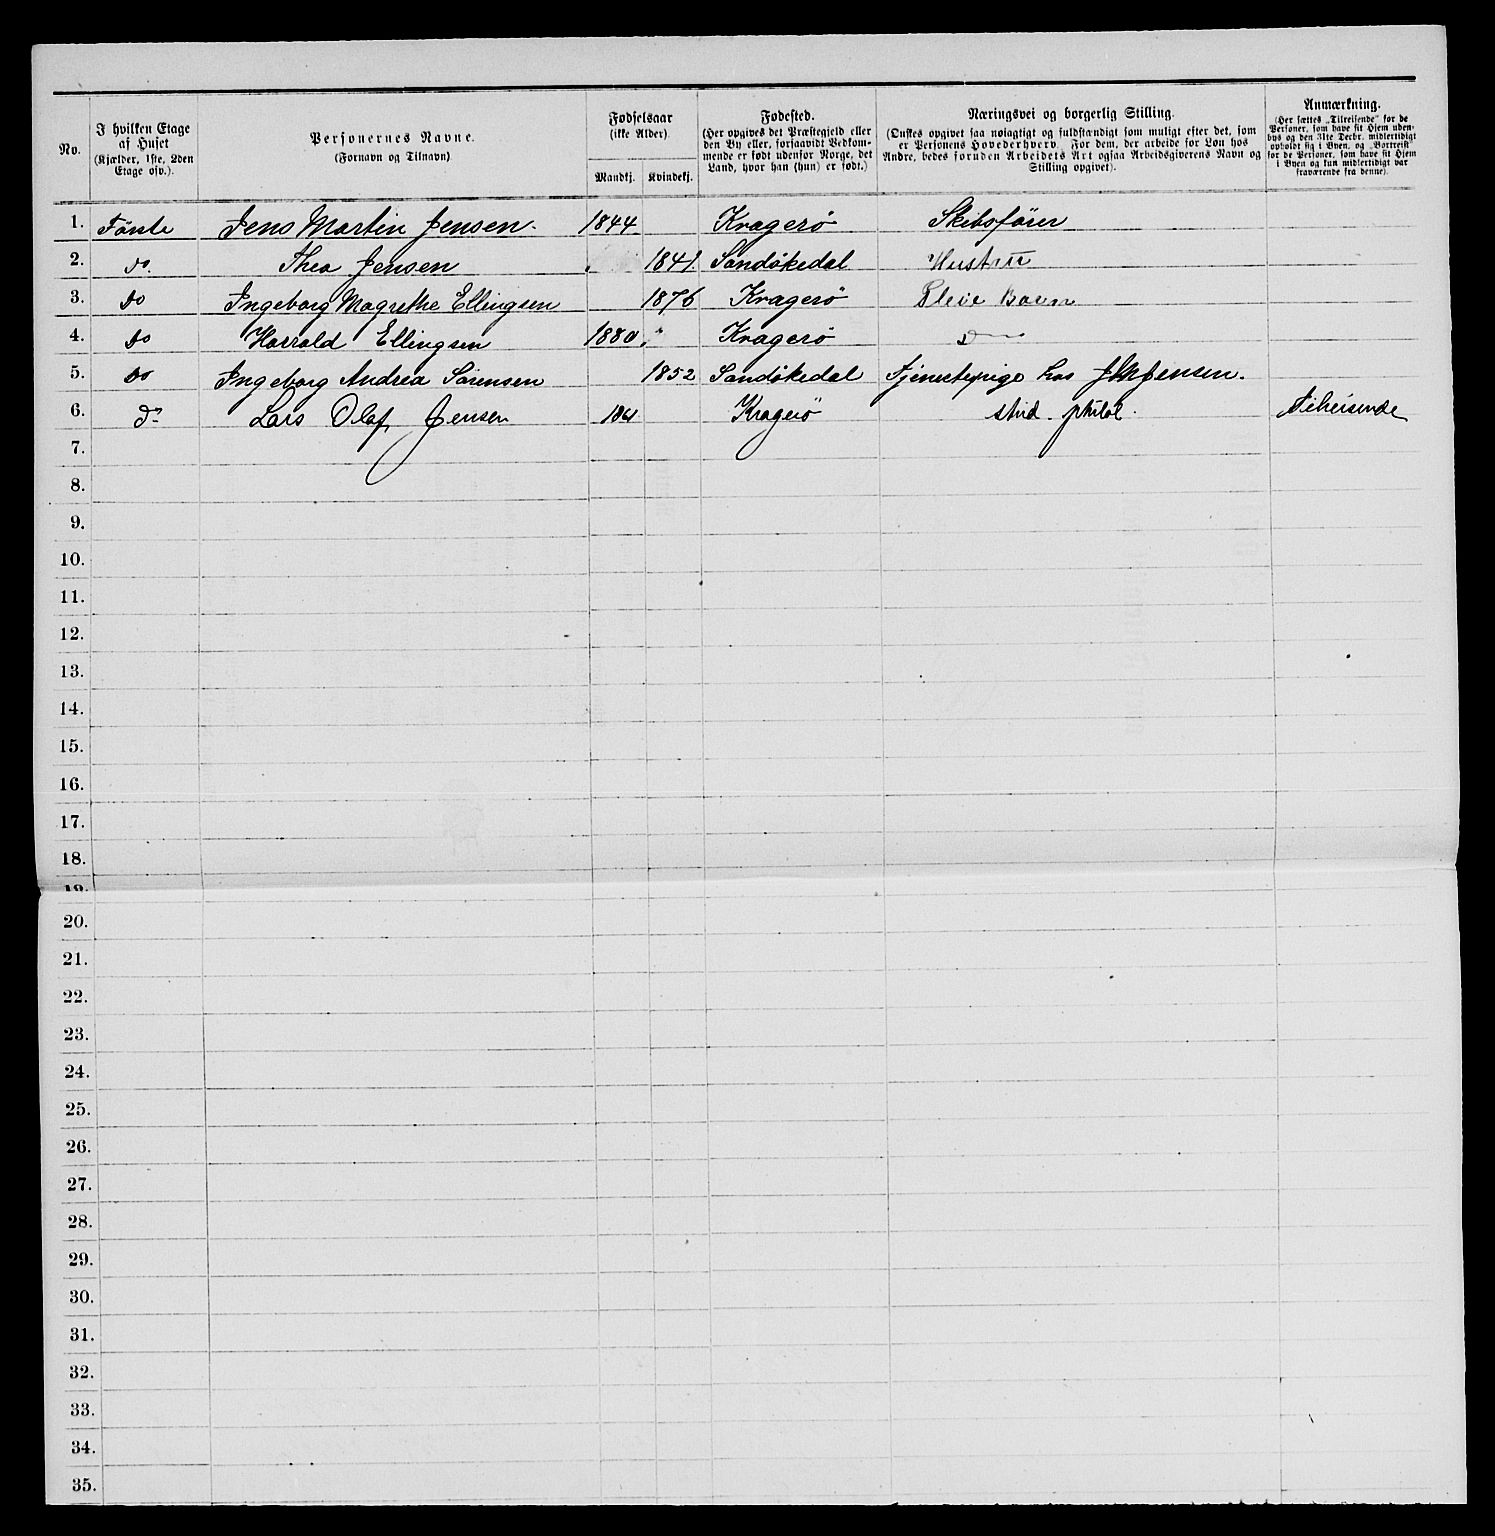 No.
I hvilken Etage
af Huset
(Kjælder, 1ste, 2den
Etage osv.).
Personernes Navne.
(Fornavn og Tilnavn)
Fødselsaar
(ikke Alder).
Mandkj. Kvindekj.
Fødested.
(Her opgives det Præstegjeld eller
den By eller, forsaavidt Vedkom-
mende er født udenfor Norge, det
Land, hvor han (hun) er født.)
Næringsvei og borgerlig Stilling.
(Ønskes opgivet saa nøiagtigt og fuldstændigt som muligt efter det, som
er Personens Hovederhverv. For dem, der arbeide for Løn hos
Andre, bedes foruden Arbeidets Art ogsaa Arbeidsgiverens Navn og
Stilling opgivet).
Anmærkning.
(Her sættes „Tilreisende" for de
Personer, som have sit Hjem uden-
bys og den 31te Decbr. midlertidigt
opholdt sig i Byen, og „Bortreist"
for de Personer, som have sit Hjem
i Byen og kun midlertidigt var
fraværende fra denne).
1. Første Jens Martin Jensen. 1844 Kragerø Skibsfører
2. do. Thea Jensen 1841. Sandökedal Hustru
3. do Ingeborg Magrethe Ellingsen 1876 Kragerö Pleie Barn
4. do Harrald Ellingsen 1880 " Kragerö do
5. do Ingeborg Andrea Sörensen 1852 Sandökedal Tjenestepige hos J M Jensen.
6. do Lars Olaf Jensen 1861 Kragerö stud. philol. Tilreisende
7.
8.
9.
10.
11.
12.
13.
14.
15.
16.
17.
18.
19.
20.
21.
22.
23.
24.
25.
26.
27.
28.
29.
30.
31.
32.
33.
34.
35.